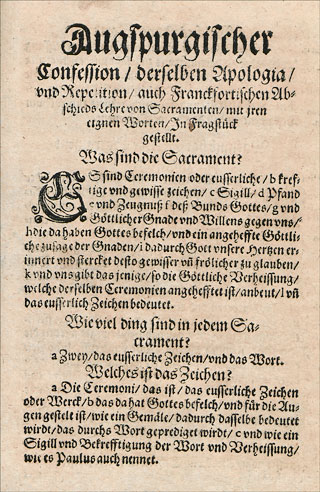 Augspurgischer
Confession / derselben Apologia /
vnd Repetition / auch Franckfortischen Ab-
schieds Lehre von Sacramenten / mit jren
eignen Worten / In Fragstück
gestellt.
Was sind die Sacrament?
ES sind Ceremonien oder eusserliche / b kref-
tige vnd gewisse zeichen / c Sigill / d Pfand
e vnd Zeugnuß f deß Bunds Gottes / g vnd
Göttlicher Gnade vnd Willens gegen vns /
h die da haben Gottes befelch / vnd ein angeheffte Göttli-
che zusage der Gnaden / i dadurch Gott vnsere Hertzen er-
innert vnd stercket desto gewisser vñ frölicher zu glauben /
k vnd vns gibt das jenige / so die Göttliche Verheissung /
welche derselben Ceremonien angehefftet ist / anbeut / l vñ
das eusserlich Zeichen bedeutet.
Wie viel ding sind in jedem Sa-
crament?
a Zwey / das eusserliche Zeichen / vnd das Wort.
Welches ist das Zeichen?
a Die Ceremoni / das ist / das eusserliche Zeichen
oder Werck / b das da hat Gottes befelch / vnd für die Au-
gen gestelt ist / wie ein Gemäle / dadurch dasselbe bedeutet
wirdt / das durchs Wort geprediget wirdt / c vnd wie ein
Sigill vnd Bekrefftigung der Wort vnd Verheissung /
wie es Paulus auch nennet.